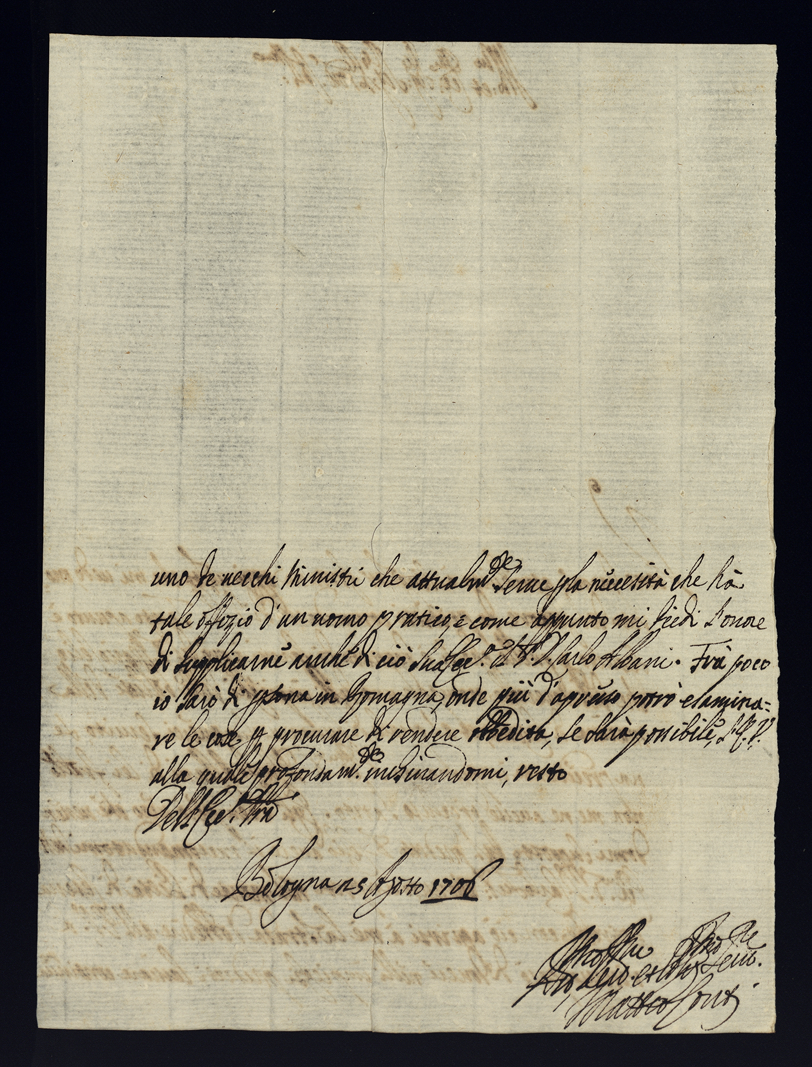 uno de vecchi Ministri che attualm.te serve p la necessità che hà
tale offizio d'un uomo pratico, e come appunto mi diedi l'onore
di supplicarne anche di ciò Sua Ecc.a il S.r D. Carlo Albani. Frà poco
io sarò di psona in Romagna, onde più d'apresso potrò esamina=
re le cose p procurare di rendere obbedita, se sarà possibile, l'E.V.
alla quale profondam.te inchinandomi, resto
Dell'Ecc. V.ra
Bologna 25 Agosto 1706
Matteo Conti